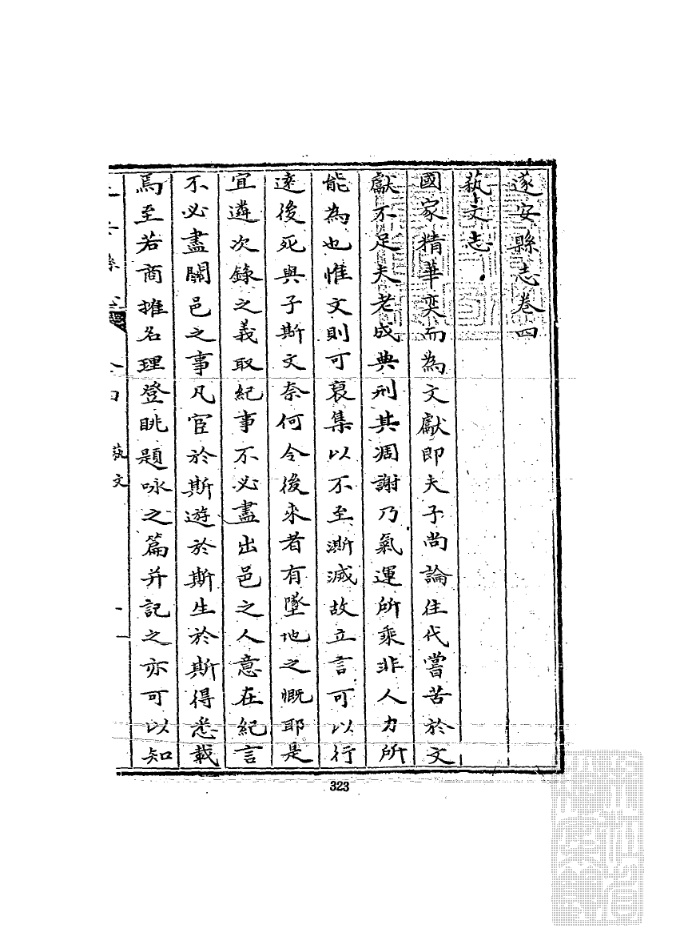 遂安縣志卷四
藝文志
國家精華奕而為文獻即夫子尚論往代嘗苦於文
獻不足夫老成典刑其凋謝乃氣運所乘非人力所
能為也惟文則可裒集以不至澌滅故立言可以行
遠後死與子斯文奈何令後來者有墜地之慨耶是
宜遴次錄之義取紀事不必盡出邑之人意在紀言
不必盡關邑之事凡宦於斯遊於斯生於斯得悉載
焉至若商搉名理登眺題咏之篇并記之亦可以知
藝文
323